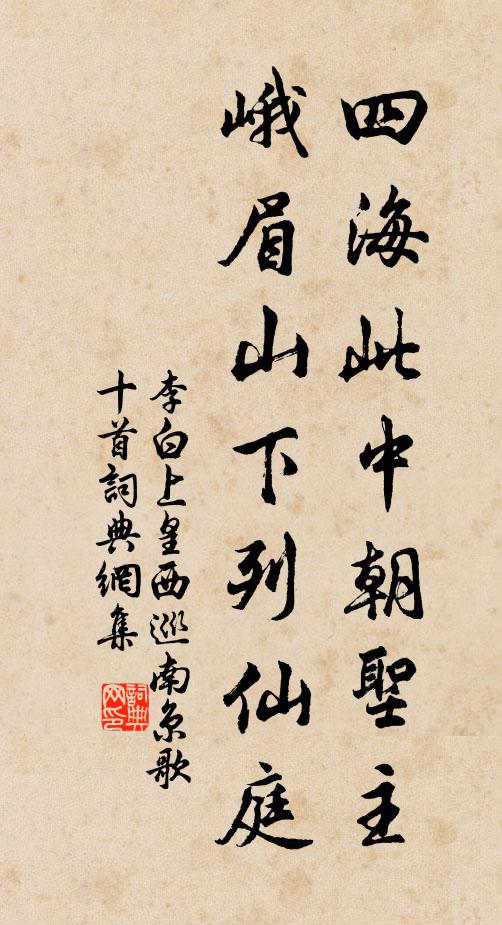 四海此中朝聖主
峨眉山下列仙庭
李白上皇西巡南京歌
十首詞典網集
詞典
网印